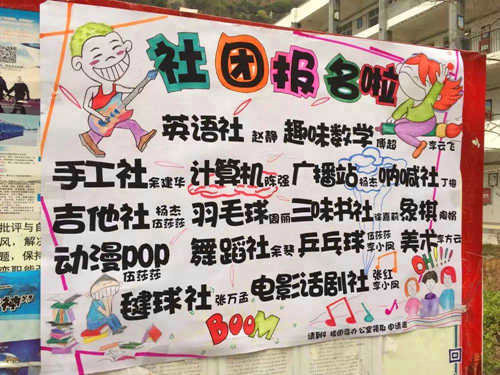 社团报名啦
英语社 赵静 趣味数学 傅超 李云飞
手工社 余建华 计算机 陈强 广播站 杨杰 呐喊社 丁梅
吉他社 杨杰 伍莎莎 羽毛球 周丽 三味书社 徐嘉莉 象棋
动漫pop 伍莎莎 舞蹈社 余琴 乒乓球 伍莎莎 李小凤 美术 李方云
毽球社 张万孟 电影话剧社 张红 李小凤
OH!!!
BOOM
批评与自
风，解决
题，保持